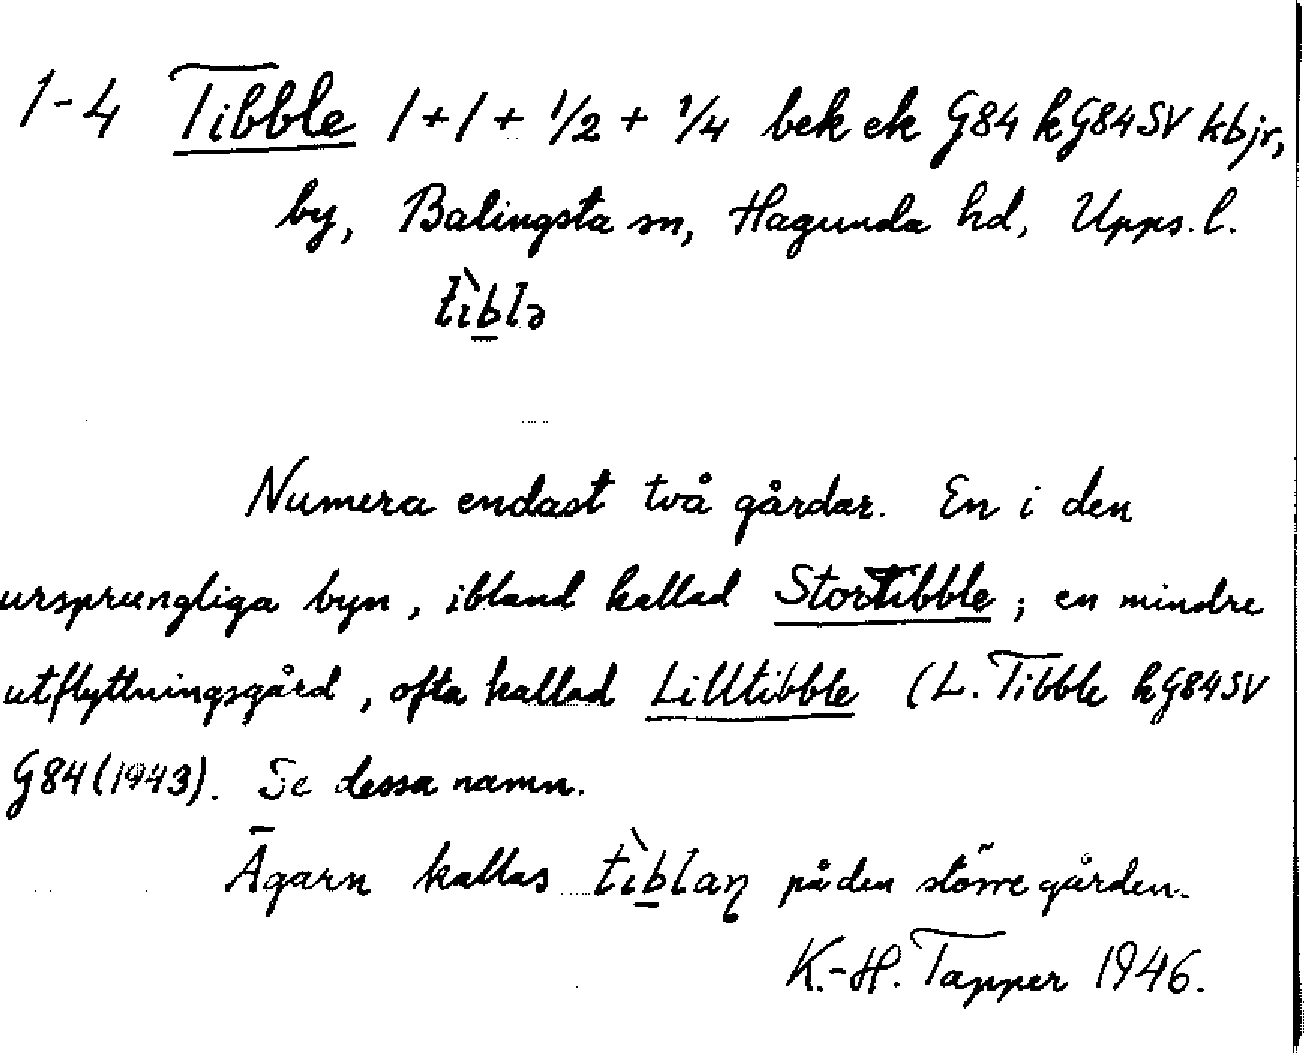 1-4 Tibble 1+1+ 1/2 + 1/4 bek ek G84 kG84SV kbjr,
by, Balingsta sn, Hagunda hd, Upps. l.
tìblə
Numera endast två gårdar. En i den
ursprungliga byn, ibland kallad Stortibble; en mindre
utflyttningsgård, ofta kallad Lilltibble (L. Tibble kG84SV
G84(1943). Se dessa namn.
Ägarn kallas tìblaɳ på den större gården.
K.-H. Tapper 1946.